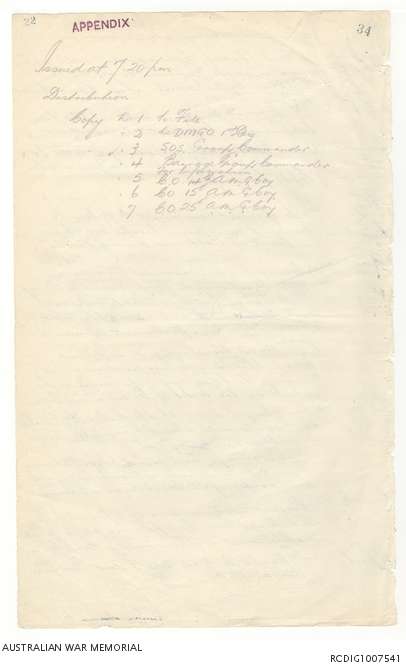 22
APPENDIX
34
Issued at 7.20 pm
Distribution
Copy No 1 to File
" 2 to DMGO 1st
" 3 SOS Group Commander
" 4 Barrage Group Commander
for information
" 5 CO A.M.G.Coy
" 6 CO 15 A.M.G.Coy
7 CO 25 A.M.G.Coy
AUSTRALIAN WAR MEMORIAL
RCDIG1007541